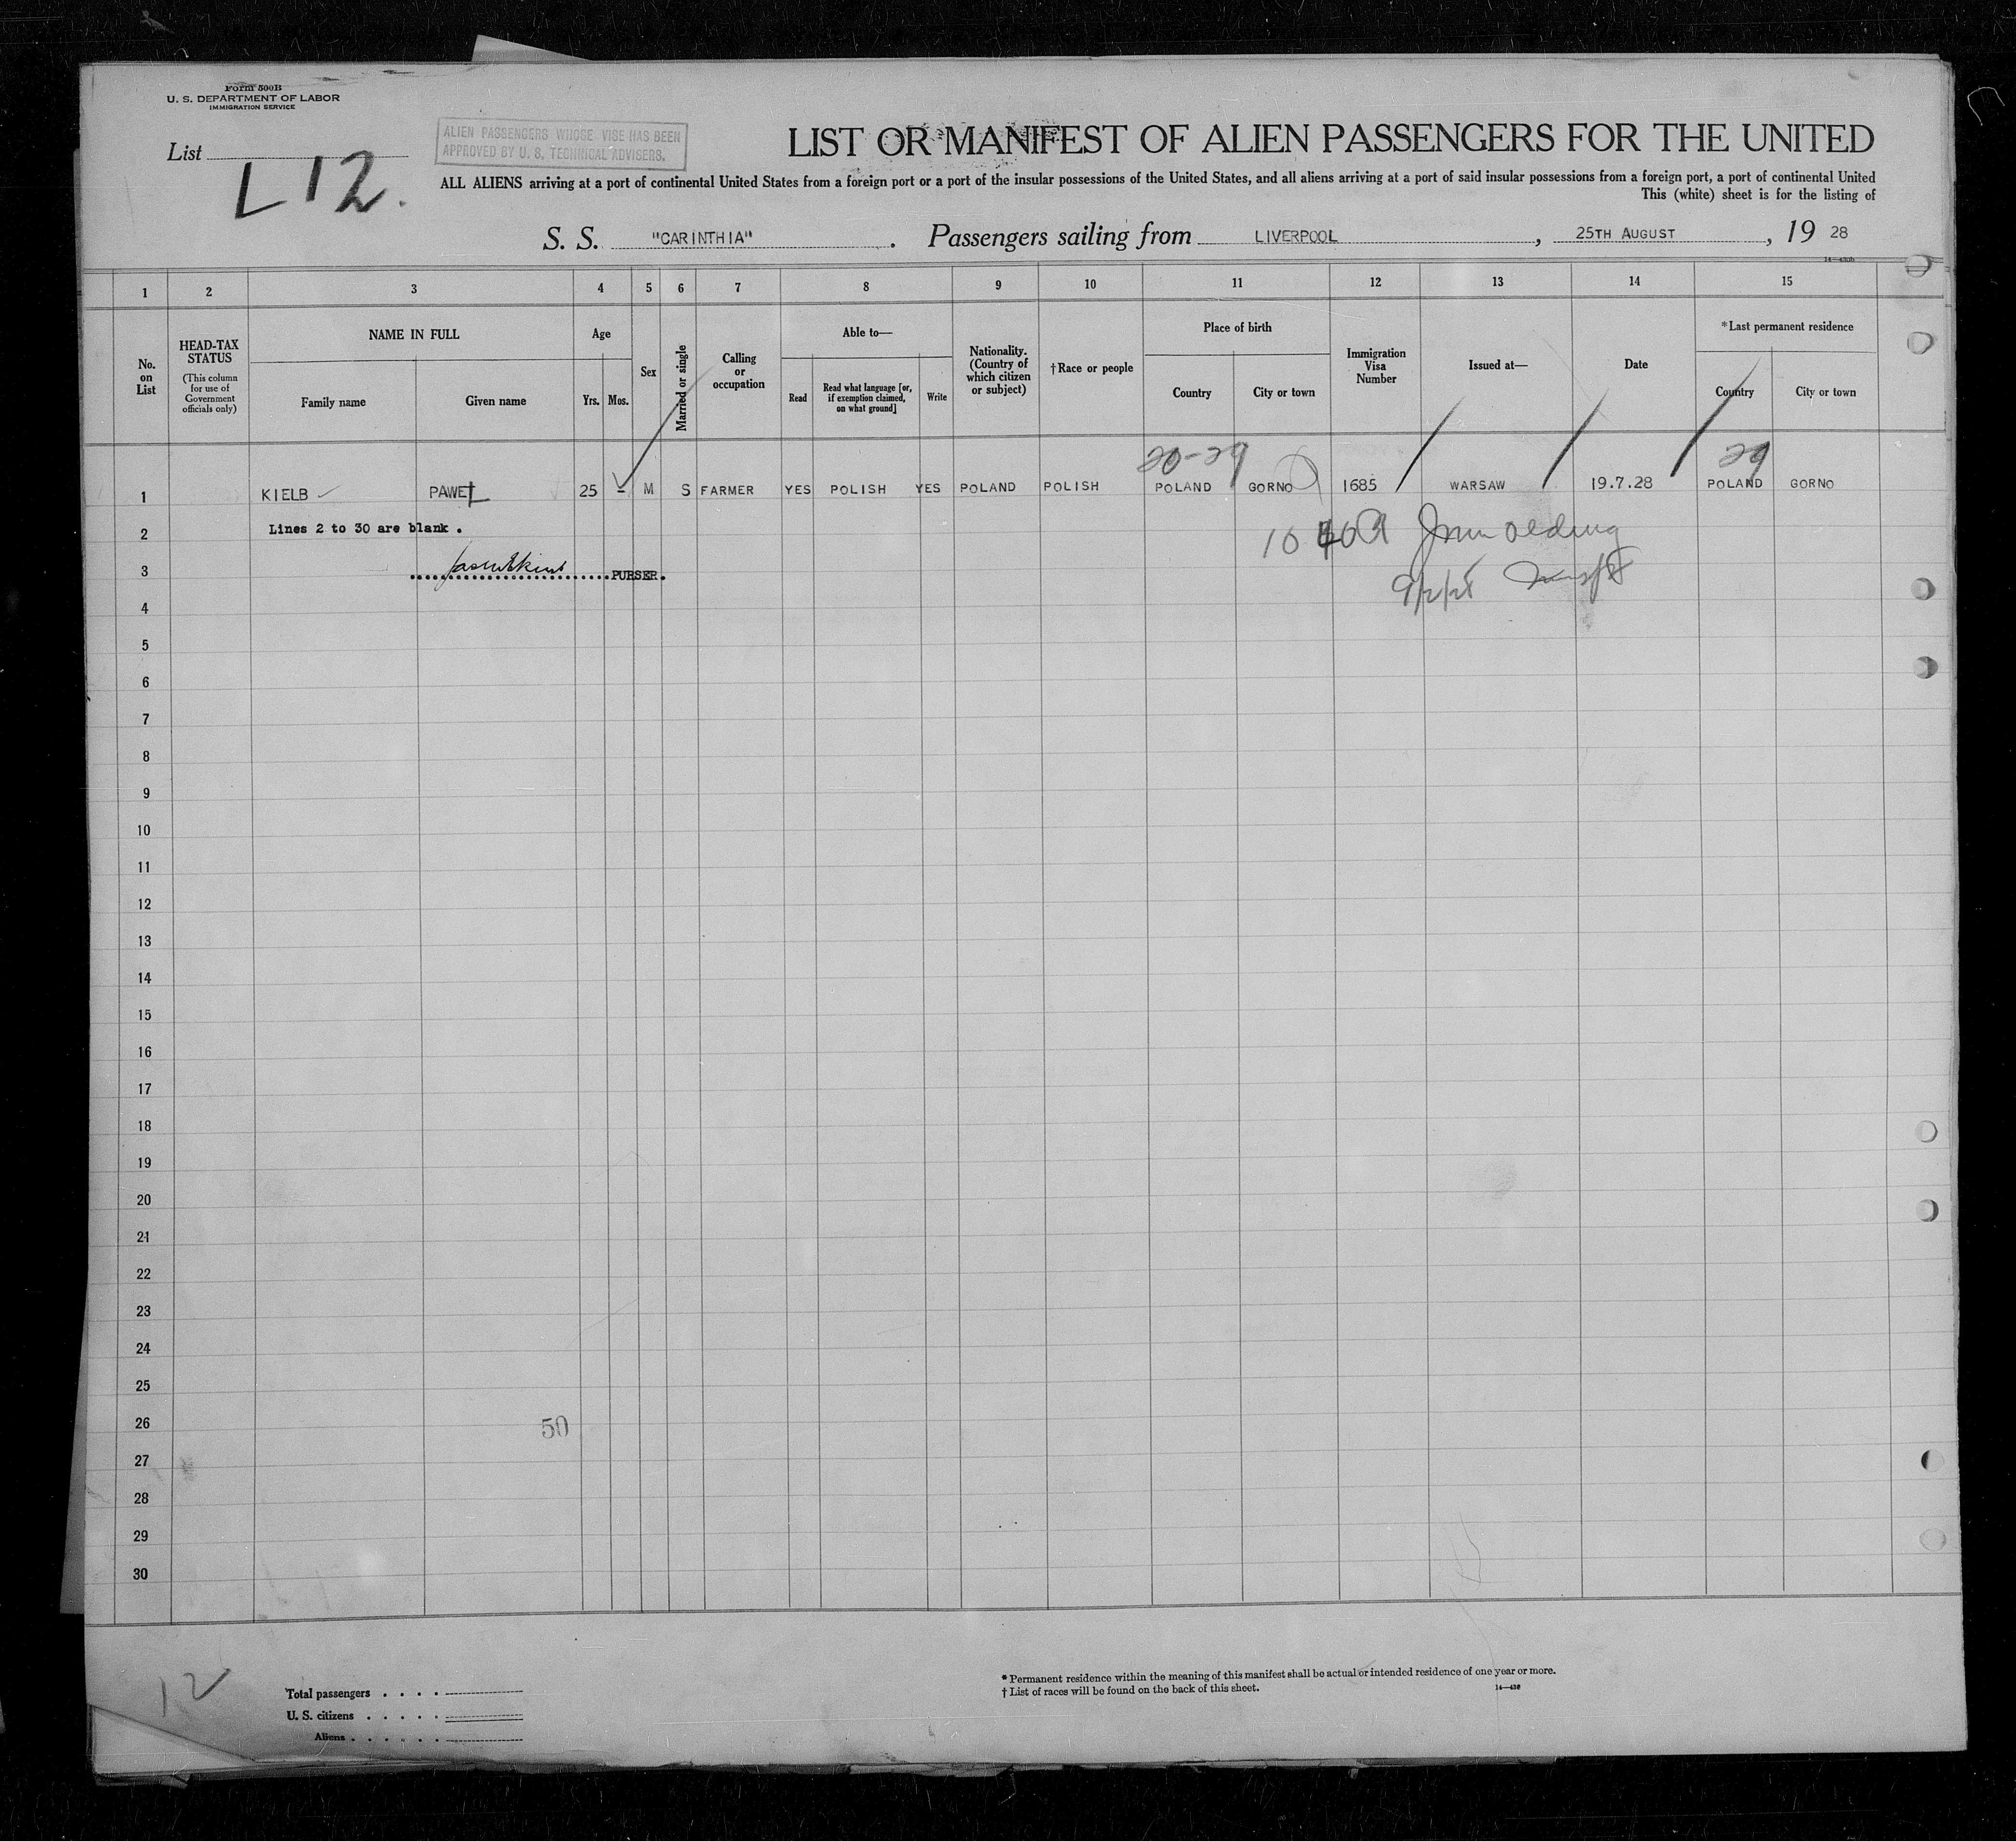 Form 500B
U. S. DEPARTMENT OF LABOR
IMMIGRATION SERVICE
List
L 12.
ALIEN PASSENGERS WHOSE VISE HAS BEEN
APPROVED BY U. S. TECHNICAL ADVISERS.
LIST OR MANIFEST OF ALIEN PASSENGERS FOR THE UNITED
ALL ALIENS arriving at a port of continental United States from a foreign port or a port of the insular possessions of the United States, and all aliens arriving at a port of said insular possessions from a foreign port, a port of continental United
This (white) sheet is for the listing of
S. S. "CARINTHIA" . Passengers sailing from LIVERPOOL , 25TH AUGUST , 19 28
1 2 3 4 5 6 7 8 9 10 11 12 13 14 15
No. on List
HEAD-TAX STATUS
(This column for use of Government officials only)
NAME IN FULL
Family name
Given name
Age
Yrs.
Mos.
Sex
Married or single
Calling or occupation
Able to—
Read
Read what language [or, if exemption claimed, on what ground]
Write
Nationality. (Country of which citizen or subject)
†Race or people
Place of birth
Country
City or town
Immigration Visa Number
Issued at—
Date
*Last permanent residence
Country
City or town
20-29 29
1 KIELB PAWEŁ 25 - M S FARMER YES POLISH YES POLAND POLISH POLAND GORNO 1685 WARSAW 19.7.28 POLAND GORNO
2 Lines 2 to 30 are blank.
3 PURSER.
4
5
6
7
8
9
10
11
12
13
14
15
16
17
18
19
20
21
22
23
24
25
26
50
27
28
29
30
12
Total passengers
U. S. citizens
Aliens
* Permanent residence within the meaning of this manifest shall be actual or intended residence of one year or more.
† List of races will be found on the back of this sheet.